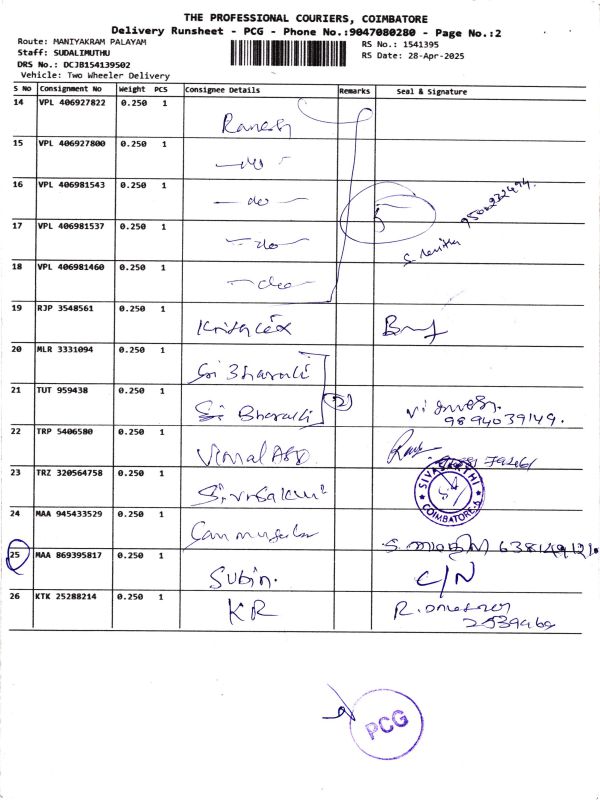 THE PROFESSIONAL COURIERS, COIMBATORE
Delivery Runsheet - PCG - Phone No.:9047080280 - Page No.:2
Route: MANIYAKRAM PALAYAM
RS No.: 1541395
Staff: SUDALIMUTHU
RS Date: 28-Apr-2025
DRS No.: DCJB154139502
Vehicle: Two Wheeler Delivery
S No Consignment No Weight PCS Consignee Details Remarks Seal & Signature
14 VPL 406927822 0.250 1 Ramesh
15 VPL 406927800 0.250 1 -do-
16 VPL 406981543 0.250 1 -do- 
17 VPL 406981537 0.250 1 -do-
18 VPL 406981460 0.250 1 -do-
19 RJP 3548561 0.250 1
20 MLR 3331094 0.250 1 Sri Bharathi
21 TUT 959438 0.250 1 Sri Bharathi 2
9894039149.
22 TRP 5406580 0.250 1
23 TRZ 320564758 0.250 1
SIVASAKTHI
COIMBATORE-6
24 MAA 945433529 0.250 1
25 MAA 869395817 0.250 1 Subin. C/N
26 KTK 25288214 0.250 1 KR
PCG